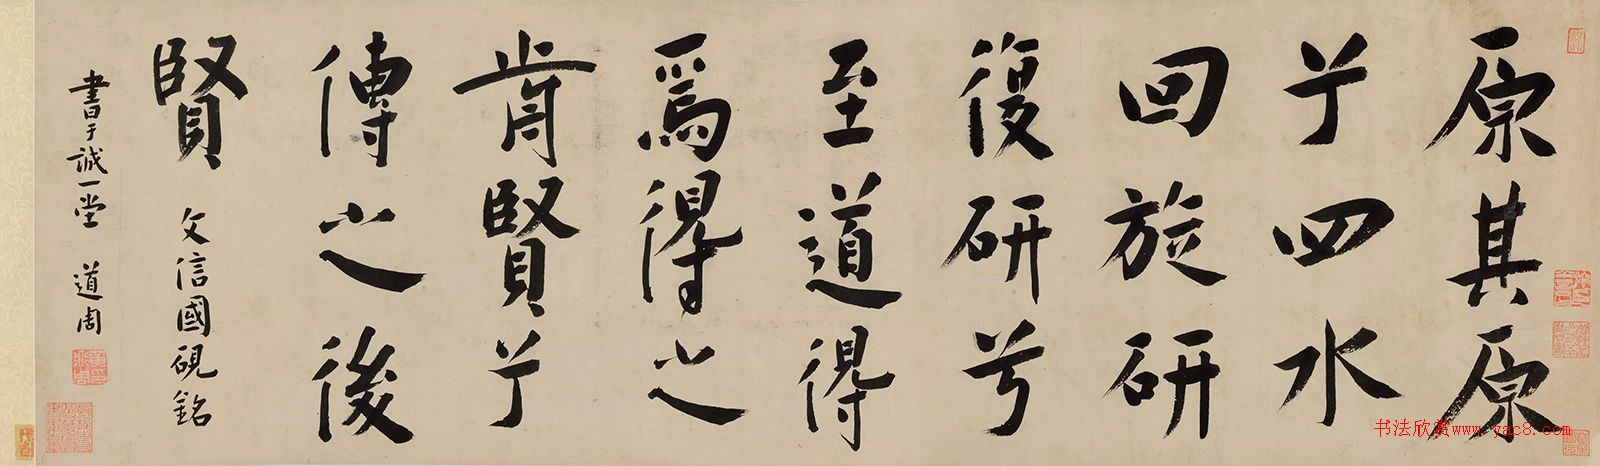 原其原
兮四水
回旋研
復研兮
至道得
焉得之
前賢兮
傳之後
賢 文信國硯銘
書于誠一堂 道周
书法欣赏www.yac8.com